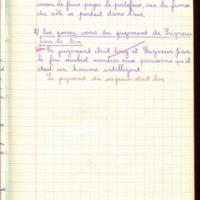 raison de faire payer le portefaix, car la fumée
du rôti se perdait dans l'air.
2) Que pensez-vous du jugement de Seigneur
Jean le Fou
Le jugement était long et Seigneur Jean
le fou voulait montrer aux parisiens qu'il
était un homme intelligent.
Le jugement du seigneur était bon